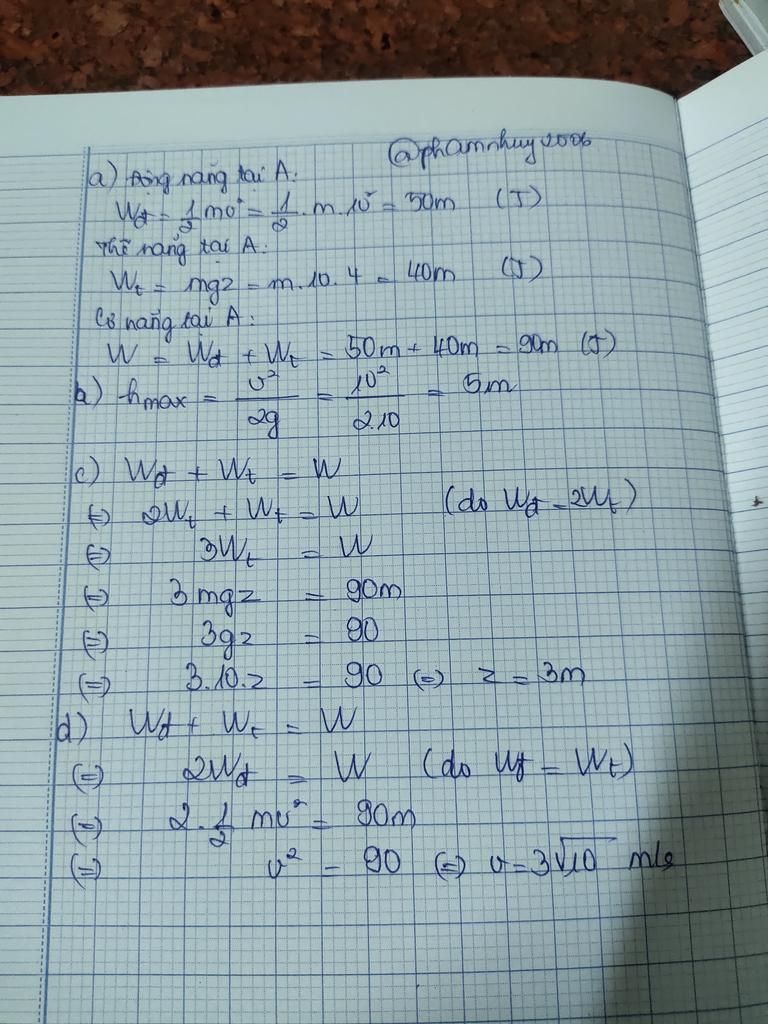 @phamnhuy2006
a) Động năng tại A:
Wđ = 1/2 mv² = 1/2 . m . 10² = 50m (J)
Thế năng tại A:
Wt = mgz = m.10.4 = 40m (J)
Cơ năng tại A:
W = Wđ + Wt = 50m + 40m = 90m (J)
b) hmax = v²/2g = 10²/2.10 = 5m
c) Wđ + Wt = W
(=) 2Wt + Wt = W (do Wđ = 2Wt)
(=) 3Wt = W
(=) 3mgz = 90m
(=) 3gz = 90
(=) 3.10.z = 90 (=) z = 3m
d) Wđ + Wt = W
(=) 2Wđ = W (do Wđ = Wt)
(=) 2. 1/2 mv² = 90m
(=) v² = 90 (=) v = 3√10 m/s